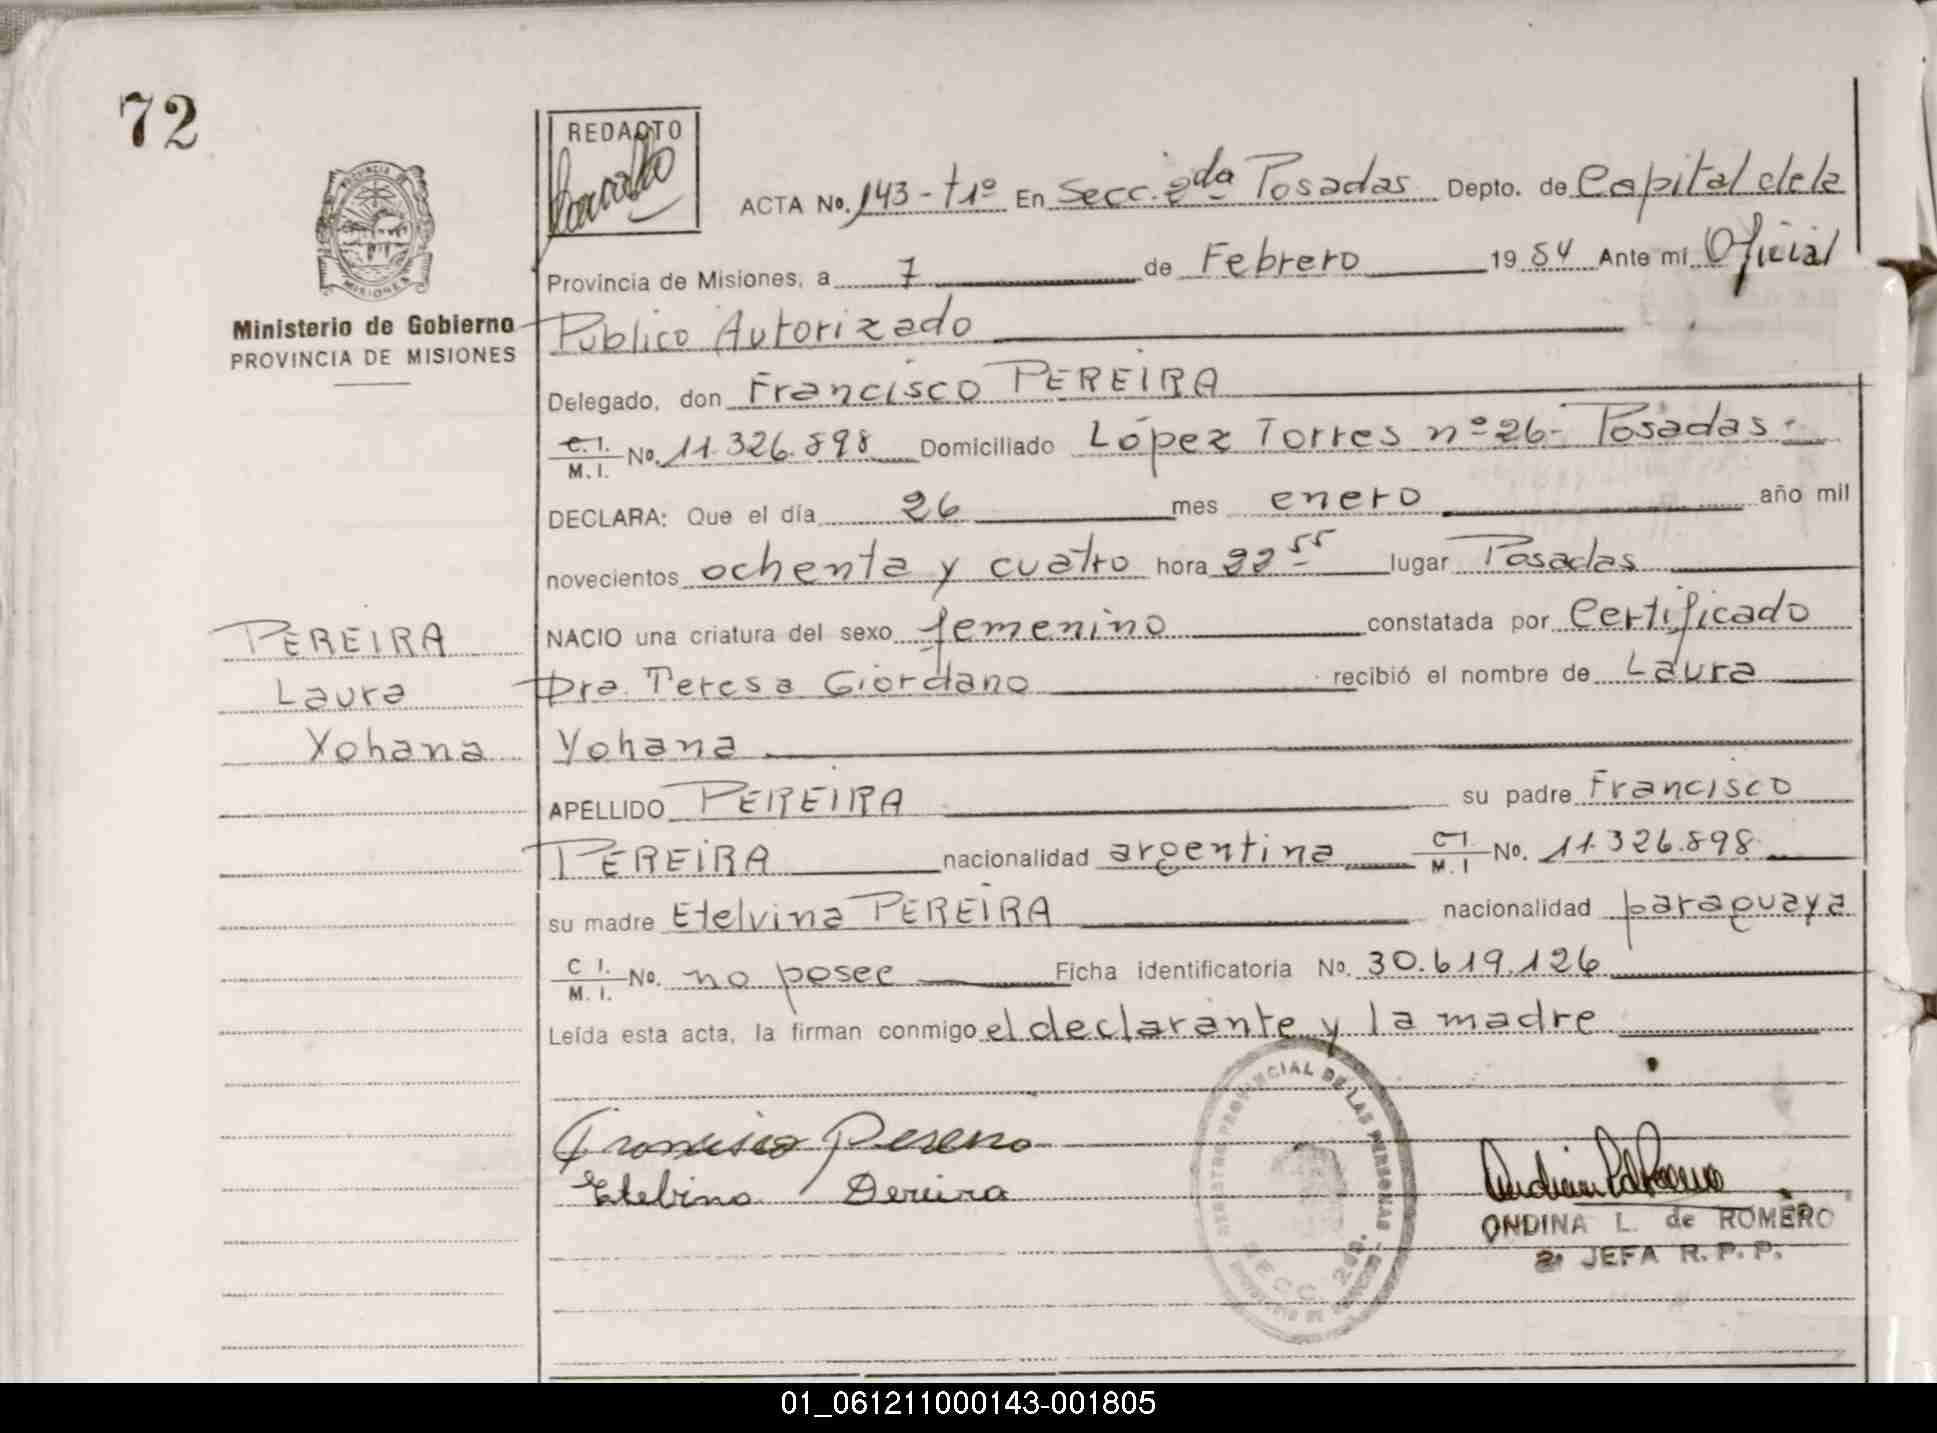 72
REDACTO
ACTA No. 143-t1º En Secc. 2da Posadas Depto. de Capital de la
Provincia de Misiones, a 7 de Febrero 1984 Ante mí Oficial
PROVINCIA DE
MISIONES
Ministerio de Gobierno
PROVINCIA DE MISIONES
Publico Autorizado
Delegado, don Francisco PEREIRA
C. I.
M. I. No. 11.326.898 Domiciliado López Torres nº 26 - Posadas -
DECLARA: Que el día 26 mes enero año mil
novecientos ochenta y cuatro hora 22 55 lugar Posadas
NACIO una criatura del sexo femenino constatada por Certificado
Dra. Teresa Giordano recibió el nombre de Laura
Yohana
PEREIRA
Laura
Yohana
APELLIDO PEREIRA su padre Francisco
PEREIRA nacionalidad argentina C I.
M. I No. 11.326.898
su madre Etelvina PEREIRA nacionalidad paraguaya
C I.
M. I. No. no posee Ficha identificatoria No. 30.619.126
Leída esta acta, la firman conmigo el declarante y la madre
Francisco Pereira
Etelbina Pereira
REGISTRO PROVINCIAL DE LAS PERSONAS
SECC. 2da.
ONDINA L. de ROMERO
2ª JEFA R. P. P.
01_061211000143-001805